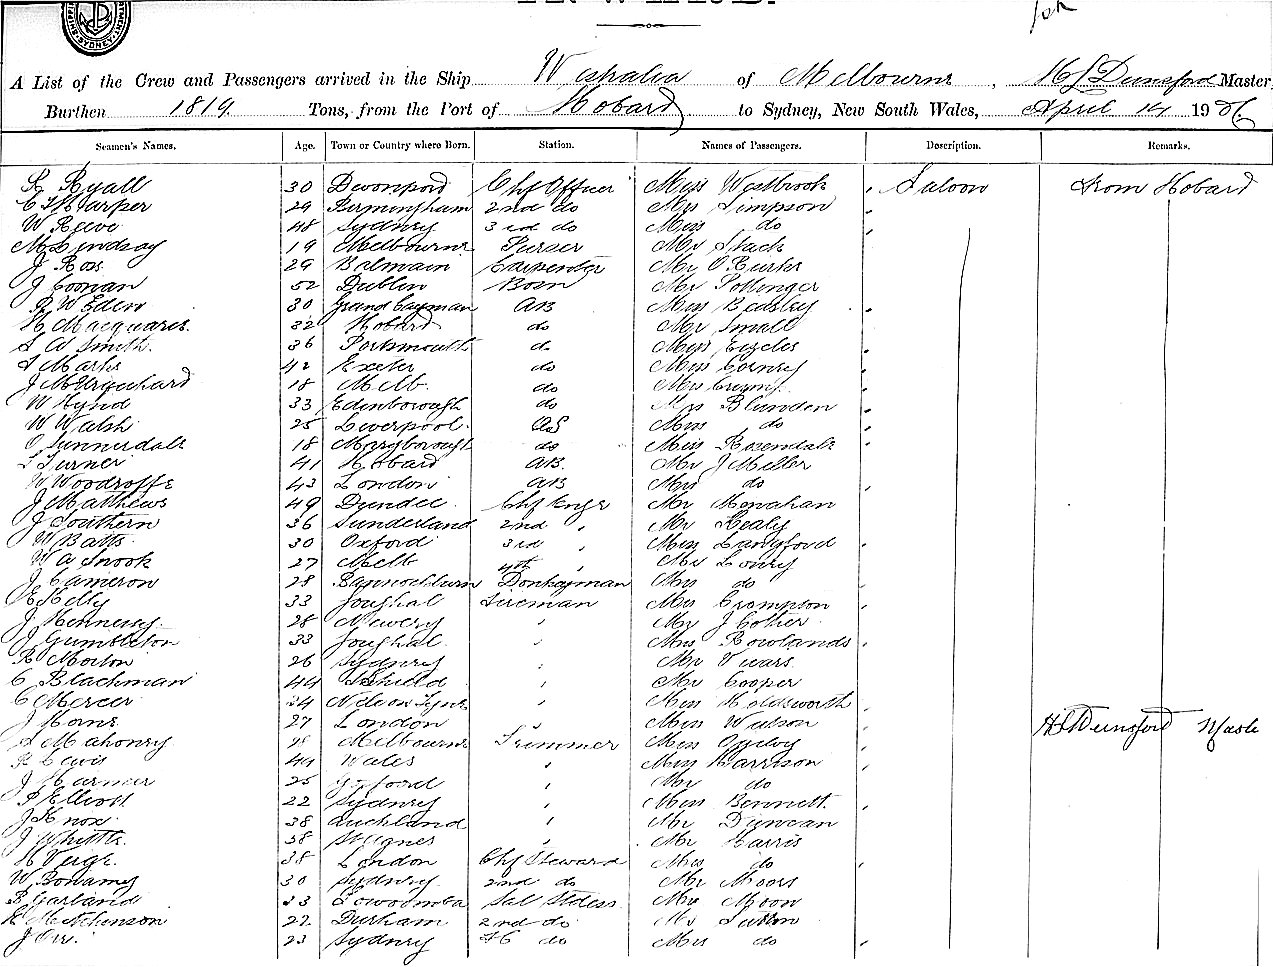 A List of the Crew and Passengers arrived in the Ship Westralia of Melbourne, H J Dunsford Master
Burthen 1819 Tons, from the Port of Hobard to Sydney, New South Wales, April 14 19
Seamen's Names. Age. Town or Country where Born. Station. Names of Passengers. Description. Remarks.
Ryall 30 Devonport Chf Officer Miss Westbrook Saloon From Hobard
Harper 29 Birmingham 2nd do Simpson
W Reeve 48 Sydney 3rd do Miss do
Lindsay 19 Melbourne Purser Mr Stack
J Ross 29 Balmain Carpenter Mr O'Rurke
J Coonan 52 Dublin Mr Sollinger
W Eden 30 Grand Cayman AB Miss Beasley
H Macquares 32 Hobard do Mr Small
S W Smith. 36 Portsmouth do Miss Eccles
S Marks 42 Exeter do Miss
J M Urquehard 18 Melb. do
W Hynd 33 Edenborough do Blunden
W Walsh 25 Liverpool. OS Miss do
O Sunnerdale 18 Maryborough do Miss Rosendale
Turner 41 Hobard AB. Mr J Miller
W Woodroffe 43 London AB do
J Matthews 49 Dundee Chf Engr Mr Monahan
J Southern 36 Sunderland 2nd " Mr Healy
W Batts 30 Oxford 3rd " Miss Langford
W A Snook 27 Melb 4th " Mr Lowry
J Cameron 28 Bannockburn Donkeyman do
E Kelly 33 Youghal Fireman Crompson
J Hennessy. 28 Newery " Mr J Cother
J Gumbleton 33 Youghal. " Rowlands
R Morton 26 Sydney " Mr Vicars
C Blachman 44 Shield " Mr Cooper
C Mercer 34 " Miss Holdsworth
J Horne 27 London " Miss Watson H J Dunsford Maste
S Mahoney 28 Melbourne Trimmer Miss Ogilvy
Lewis 44 Wales " Harrison
J Harmer 25 " Mr do
P Elliott 22 Sydney " Miss Bennett.
J Knox 38 Auckland " Mr Duncan
J Whittle. 38 " Mr Harris
H 38 London Chf Steward do
W Bonamy 30 Sydney 2nd do Mr Moors
B Garland 33 Towoomba Sal Stdess. Moon
22 Durham 2nd do
J Orr. 23 Sydney do do